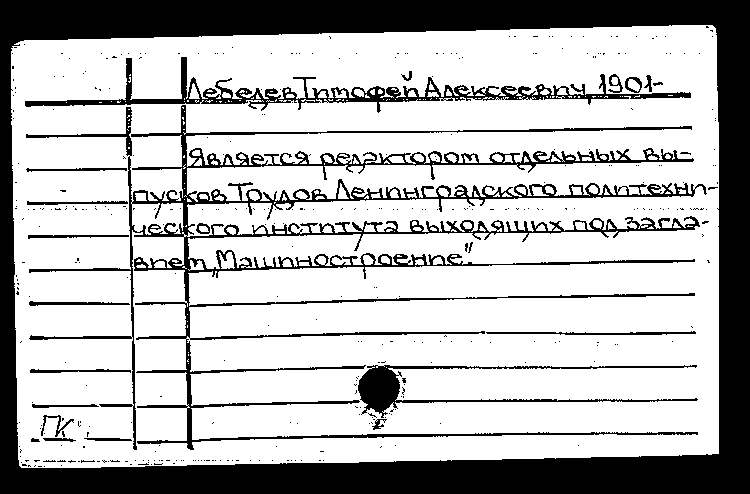 Лебедев, Тимофей Алексеевич, 1901-
Является редактором отдельных вы-
пусков Трудов Ленинградского политехни-
ческого института выходящих под загла-
вием „Машиностроение".
ГК